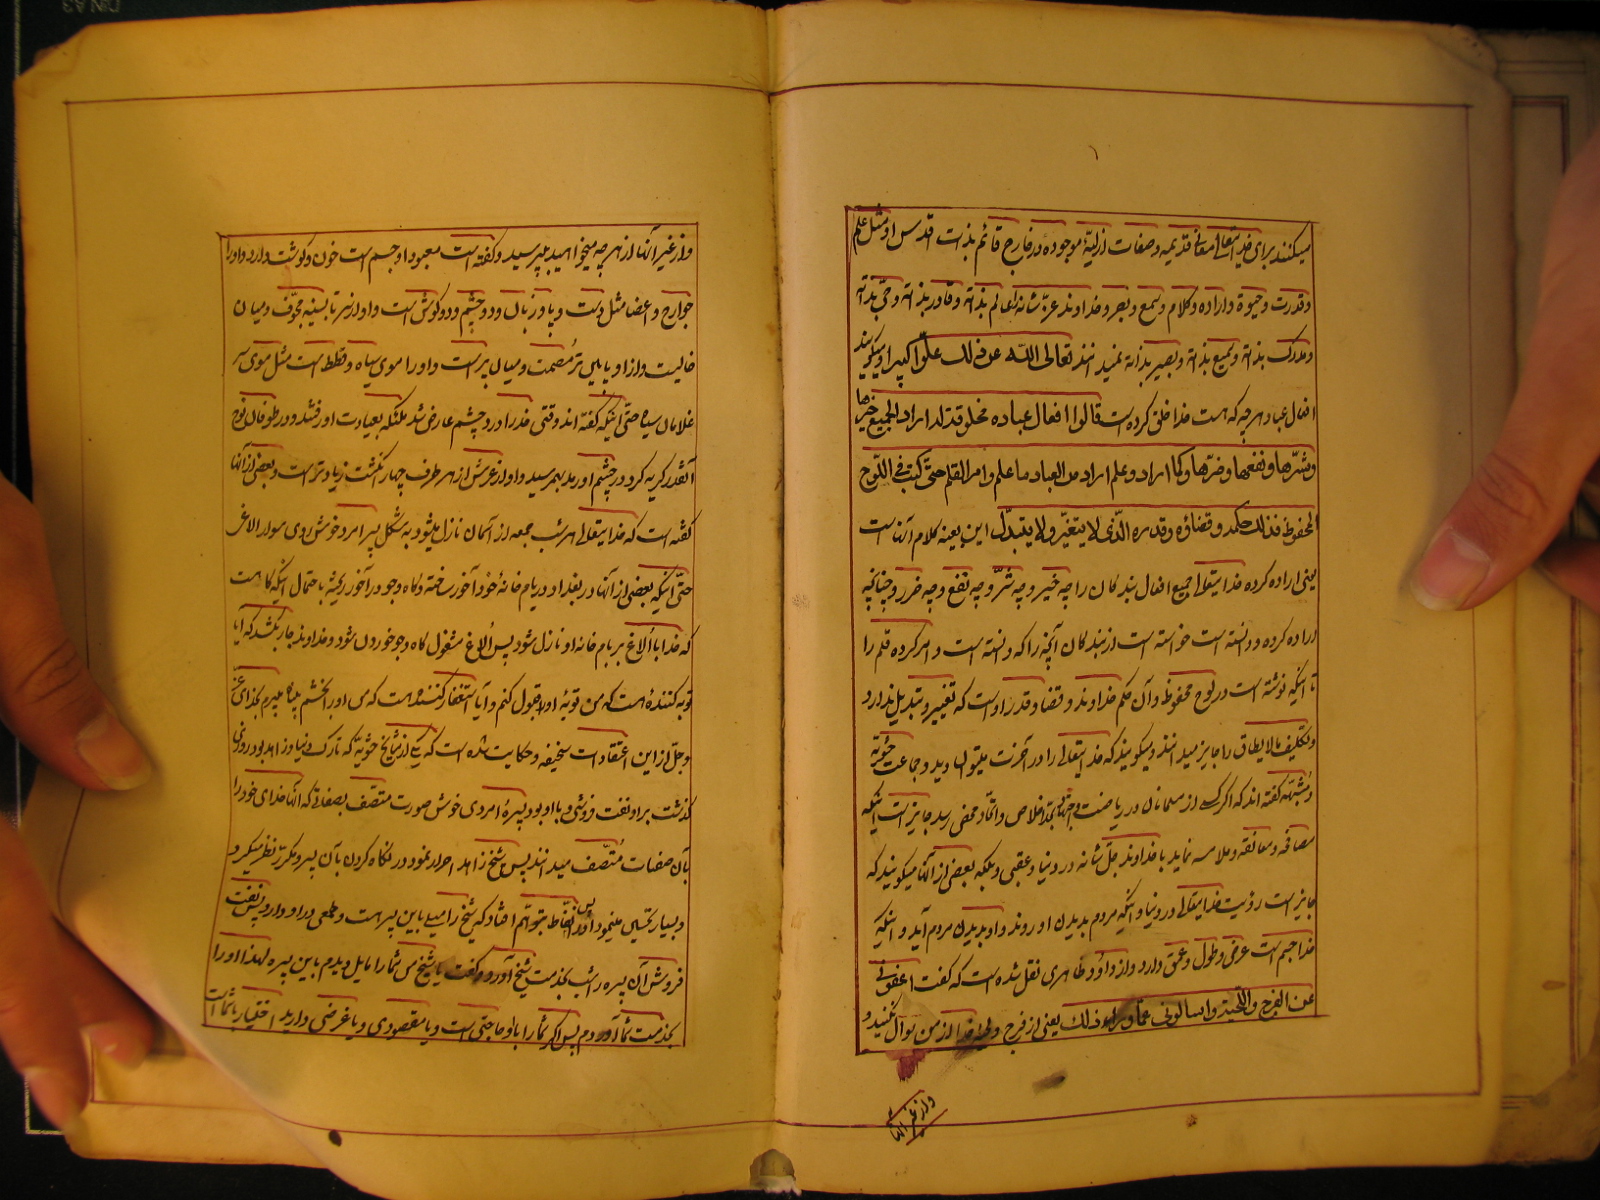 میکنند برای خدایتعالی معانی قدیمه و صفات ازلیهٔ موجوده در خارج قائم بذات اقدس او مثل علم
و قدرت و حیوة و اراده و کلام و سمع و بصر و خداوند عزّ شانه را عالم بذاته و قادر بذاته و حیّ بذاته
و مدرک بذاته و سمیع بذاته و بصیر بذاته نمیدانند تعالی اللّه عن ذلک علوّا کبیرا و میگویند
افعال عباد هر چه که هست خدا خلق کرده است قالوا افعال عباده مخلوقة له اراد الجمیع خیرها
و شرّها و نفعها و ضرّها و کما اراد و علم اراد من العباد ما علم و امر القلم حتی کتب فی اللّوح
المحفوظ فذلک حکمه و قضاؤه و قدره الّذی لا یتغیّر و لا یتبدّل این بعینه کلام آنها است
یعنی اراده کرده خدایتعالی جمیع افعال بندگان را چه خیر و چه شرّ و چه نفع و چه ضرر و چنانکه
اراده کرده و دانسته است خواسته است از بندگان آنچه را که دانسته است و امر کرده قلم را
تا اینکه نوشته است در لوح محفوظ و آن حکم خداوند و قضا و قدر او است که تغییر و تبدیل ندارد
و تکلیف مالایطاق را جایز میدانند و میگویند که خدایتعالی را در آخرت میتوان دید و جماعت حشویّه
و مشبّهه گفته اند که اگر کسی از مسلمانان در ریاضت و اجتهاد بحدّ اخلاص و اتّحاد محض رسد جایز است اینکه
مصافحه و معانقه و ملامسه نماید با خداوند جلّ شانه در دنیا و عقبی و بلکه بعضی از آنها میگویند که
جایز است رؤیت خدایتعالی در دنیا و اینکه مردم بدیدن او روند و او بدیدن مردم آید و اینکه
خدا جسم است عرض و طول و عمق دارد و از داود ظاهری نقل شده است که گفت اعفونی
عن الفرج و اللّحیة و اسالونی عمّا وراء ذلک یعنی از فرج و لحیه خدا از من سوال نکنید و
و از غیر آنها
و از غیر آنها از هر چه میخواهید بپرسید و گفته است معبود او جسم است خون و گوشت دارد و او را
جوارح و اعضا مثل دست و پا و زبان و دو چشم و دو گوش است و او از سر تا بسینه مجوّف و میان
خالیست و از او پایین تر مُصمت و میان پر است و او را موی سیاه و قطط است مثل موی سر
غلامان سیاه حتّی اینکه گفته اند وقتی خدا را درد چشم عارض شد ملئکه بعیادت او رفتند و در طوفان نوح
آنقدر گریه کرد که درد چشم او را بهم رسید و او از عرش از هر طرف چهار انگشت زیادتر است و بعضی از آنها
گفته است که خدایتعالی هر شب جمعه از آسمان نازل میشود به شکل پسر امرد خوش روی سوار الاغی
حتّی اینکه بعضی از آنها در بغداد در بام خانهٔ خود آخور ساخته و کاه و جو در آخور ریخته باحتمال اینکه گاهست
که خدا با اُلاغ بر بام خانه او نازل شود پس اُلاغ مشغول کاه و جو خوردن شود و خداوند جار بکشد که ایا
توبه کنندهٔ هست که من توبهٔ او را قبول کنم و آیا استغفار کنندهٔ هست که من او را بخشم پناه میبرم بخدای عزّ
و جلّ از این اعتقادات سخیفه و حکایت شده است که یکی از مشایخ حشویّه که تارک دنیا و زاهد بود روزی
گذشت بر او نفت فروشی و با او بود پسرهٔ اَمردی خوش صورت متصّف بصفاتیکه آنها خدای خود را
بآن صفات مُتّصف میدانند پس شیخ زاهد اصرار نمود در نگاه کردن بآن پسر و مکرّر نظر میکرد
و بسیار تحسین مینمود او را پس نفّاط بتوهّم افتاد که شیخ را میلی باین پسر هست و طمعی در او دارد پس نفت
فروش آن پسره را شب بخدمت شیخ آورد و گفت یا شیخ من شما را مایل دیدم باین پسره لهذا او را
بخدمت شما آوردم پس اگر شما را باو حاجتی است و یا مقصودی و یا غرضی دارید اختیار با شما است